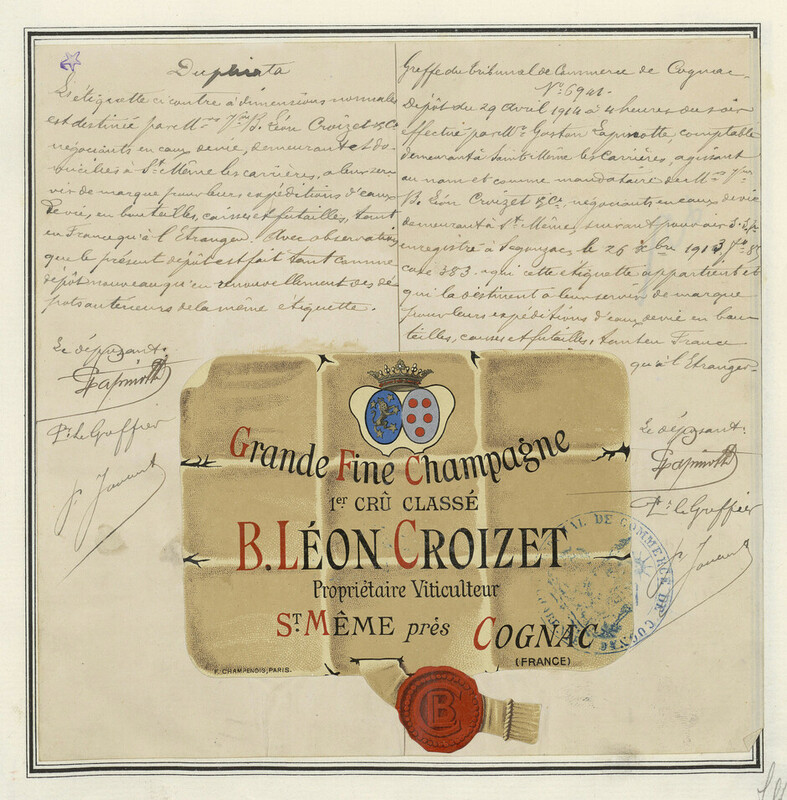 Duplicata
L'étiquette ci contre à dimensions normales
est destinée par M.rs Vve B. Léon Croizet & Cie
négociants en eaux devie, demeurant et do-
miciliés à St Même les carrières, a leur ser
vir de marque pour leurs expéditions d'eaux
devie, en bouteilles, caisses et futailles, tant
en France qu'à l'Etranger. Avec observation
que le présent dépôt est fait tant comme
dépôt nouveau qu'en renouvellement des dé
pots antérieurs de la même étiquette.
Le déposant.
Lapinotte
Pr le Greffier
Greffe du tribunal de Commerce de Cognac
No 6941.
Dépôt du 29 avril 1914 à 4 heures du soir
effectué par Mr Gaston Lapinotte, comptable
demeurant à Saint Même les Carrières, agissant
au nom et comme mandataire de M.rs Vve
B. Léon Croizet & Cie, négociants en eaux devie
demeurant à St Même, suivant pouvoir s.s.p.
enregistré à Segonzac le 26 xbre 1913, fo 85
case 383 - qui cette étiquette appartient et
qui la destinent a leur servir de marque
pour leurs expéditions d'eaux devie en bou-
teilles, caisses et futailles, tant en France
qu'à l'Etranger.
Le déposant.
Lapinotte
Pr le Greffier
Grande Fine Champagne
1er CRÛ CLASSÉ
B. LÉON CROIZET
Propriétaire Viticulteur
ST MÊME près COGNAC
(FRANCE)
F. CHAMPENOIS, PARIS.
TRIBUNAL DE COMMERCE DE COGNAC